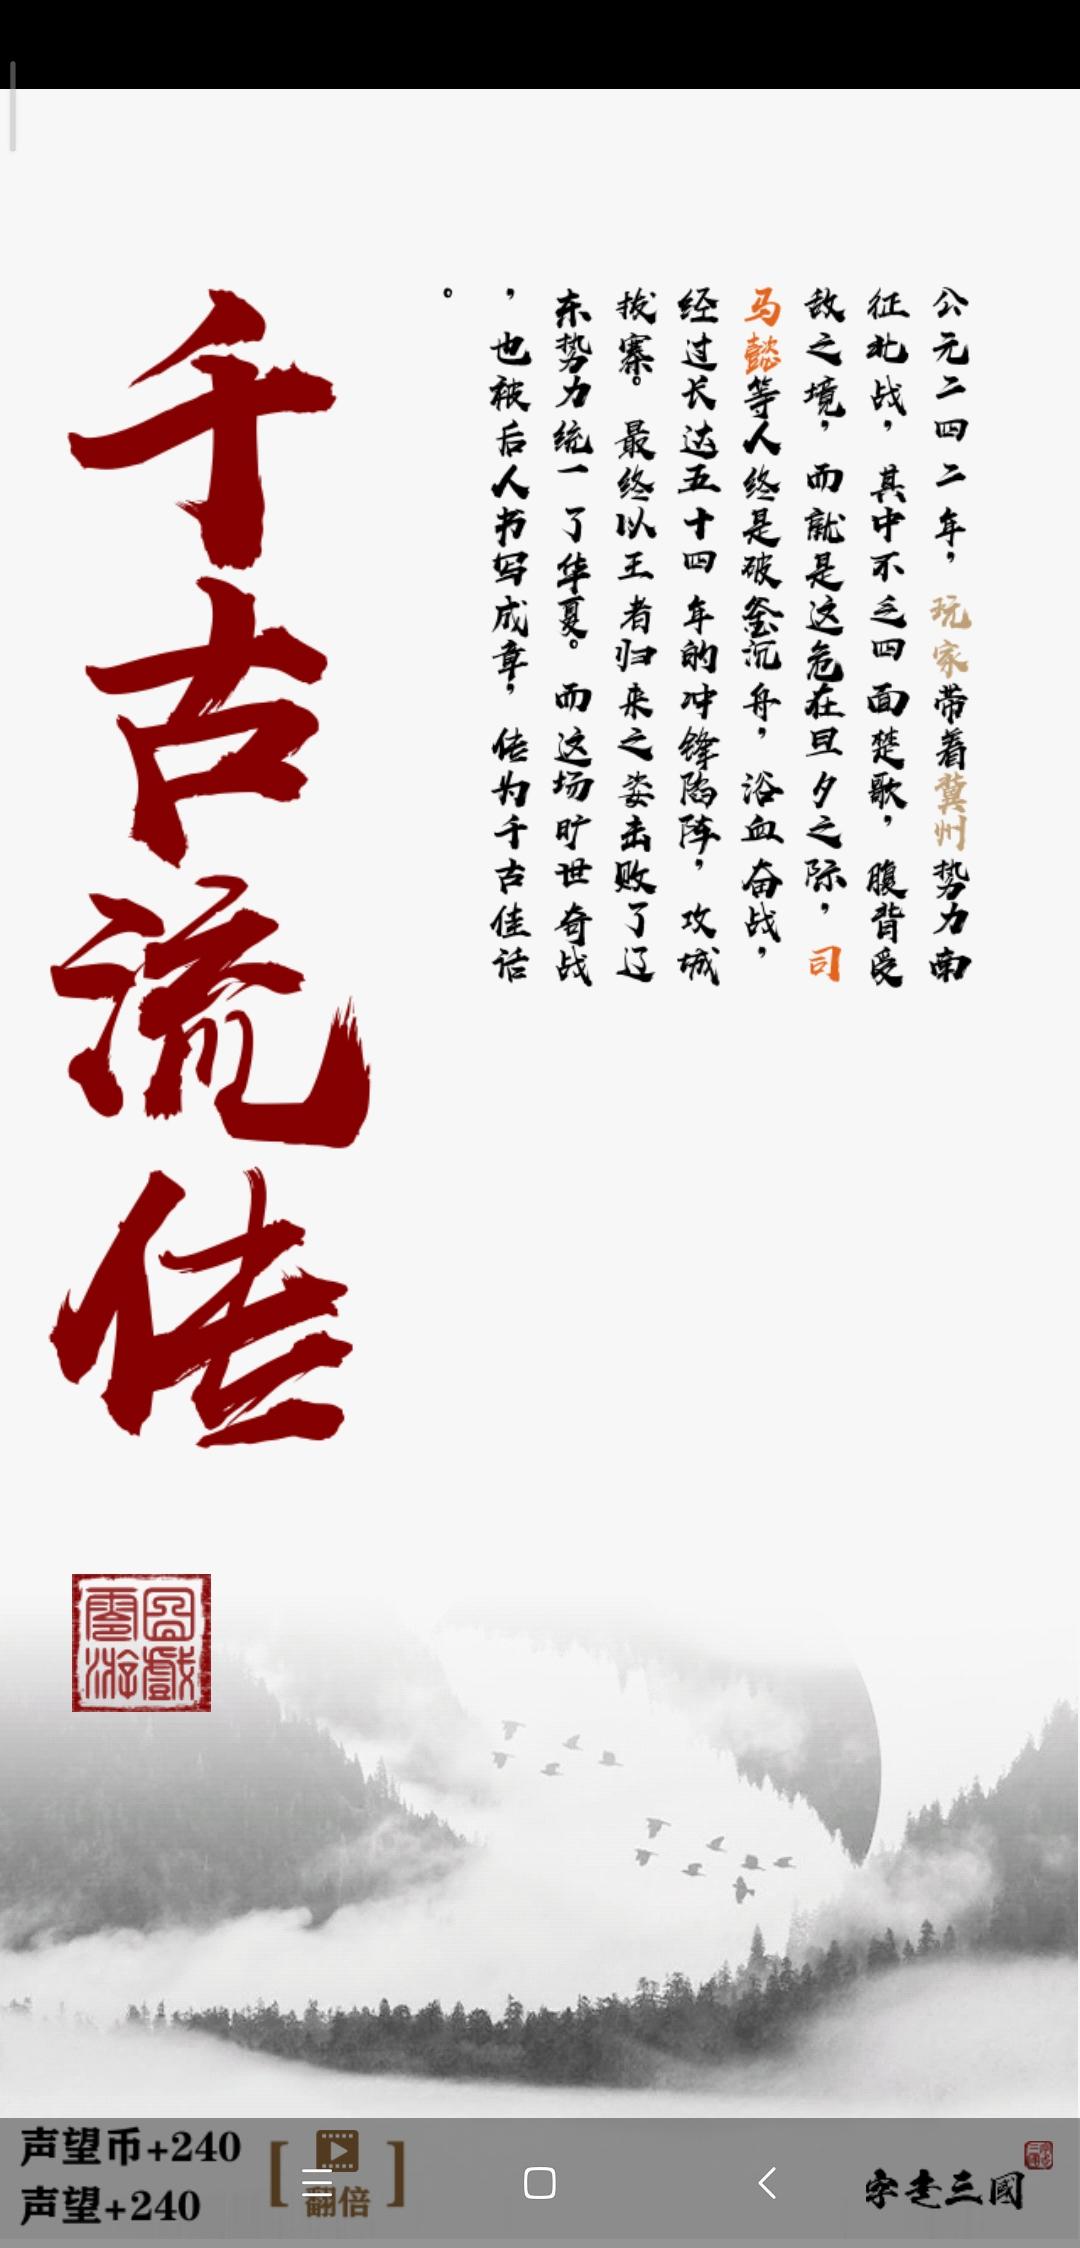 公元二四二年，玩家带着冀州势力南
征北战，其中不乏四面楚歌，腹背受
敌之境，而就是这危在旦夕之际，司
马懿等人终是破釜沉舟，浴血奋战，
经过长达五十四年的冲锋陷阵，攻城
拔寨。最终以王者归来之姿击败了辽
东势力统一了华夏。而这场旷世奇战
，也被后人书写成章，传为千古佳话
。
千古流传
声望币+240
声望+240
翻倍